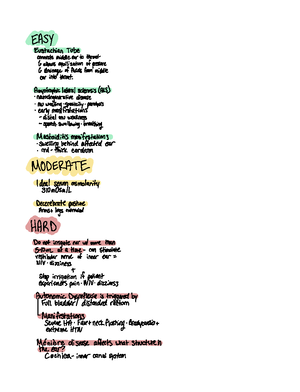 EASY
Eustachian Tube
connects middle ear to throat
& allows equalization of pressure
& drainage of fluids from middle
ear into throat.
Amyotrophic lateral sclerosis (ALS)
- neurodegenerative disease
- early manifestations
- distal weakness
- speech, swallowing, breathing
Mastoiditis manifestations
- swelling behind affected ear
- red, thick eardrum
MODERATE
Ideal serum osmolarity
310 mOsm/L
Decerebrate posture
Arms & legs extended
HARD
Do not irrigate ear w/ more than
5-10mL at a time - can stimulate
vestibular nerve of inner ear =
N/V, dizziness
Stop irrigation if patient
experiences pain, N/V, dizziness
Autonomic Dysreflexia is triggered by
Full bladder/ distended rectum
Manifestations
Severe HA, Face + neck flushing, Bradycardia +
extreme HTN
Ménière disease affects what structure in
the ear?
Cochlea - inner canal system